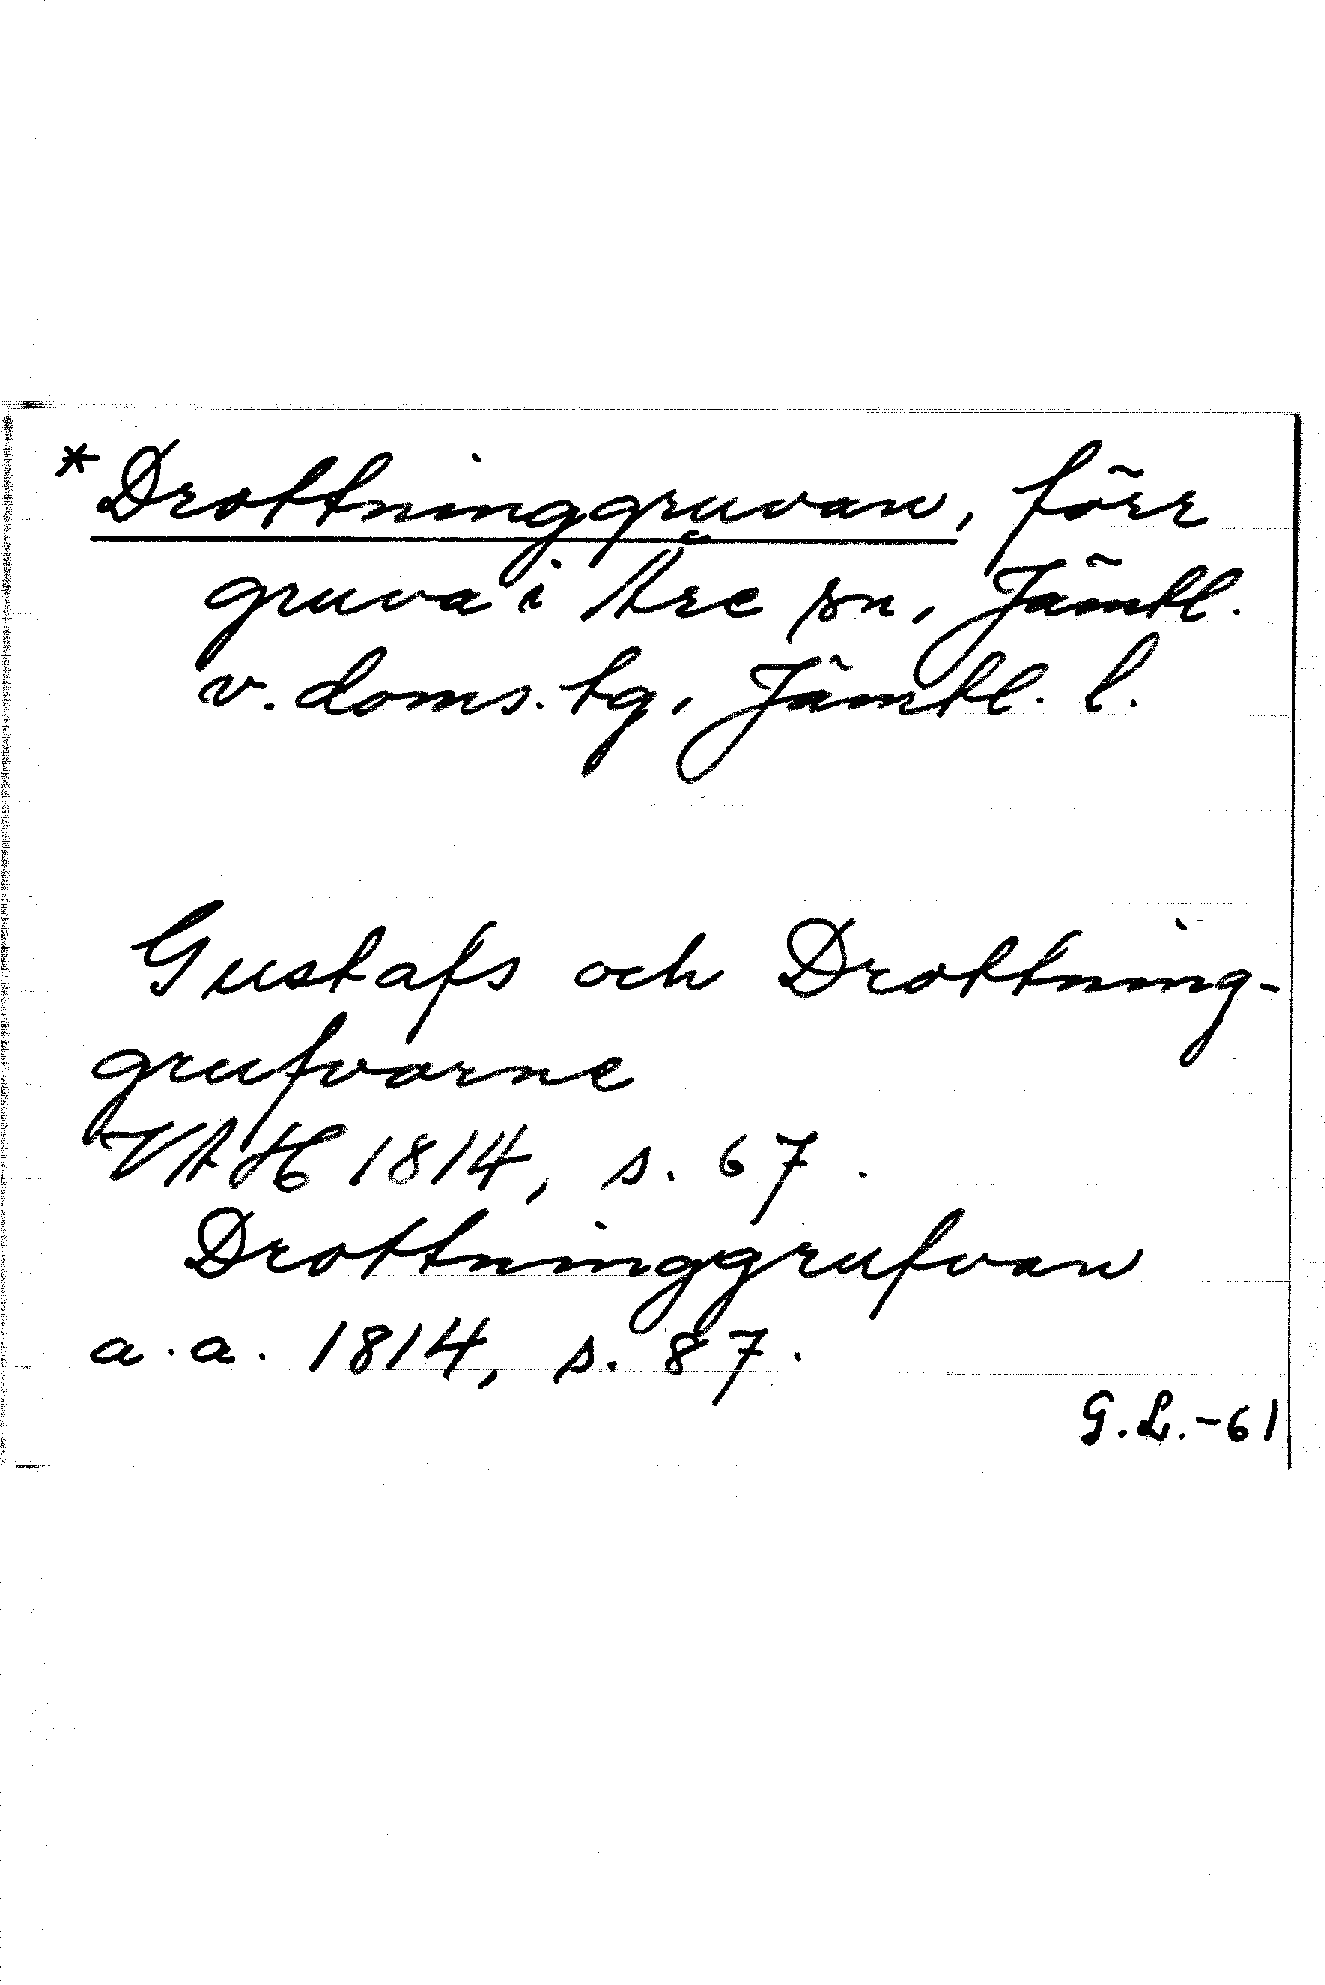 *Drottninggruvan, förr
gruva i Åre sn, Jämtl.
v. doms. tg, Jämtl. l.
Gustafs och Drottning-
grufvorne
VAH 1814, s. 67.
Drottninggrufvan
a.a. 1814, s. 87.
G.L.-61